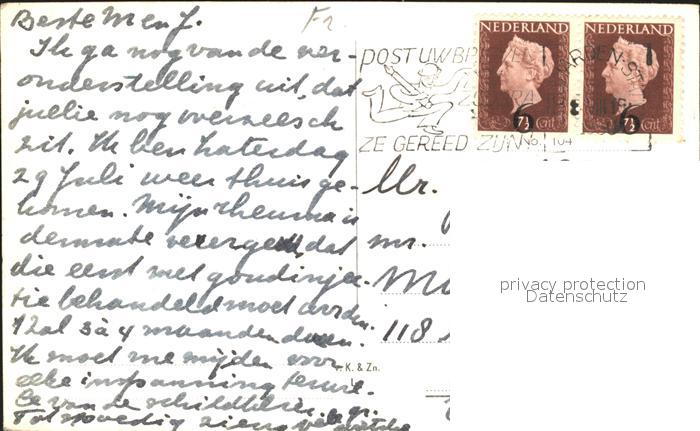 Beste M en J. Fr.
Ik ga nog van de ver-
onderstelling uit, dat
jullie nog overzeesch
zit. Ik ben Zaterdag
29 Juli weer thuis ge-
komen. Mijn rheuma is
dermate verergerd, dat
die eerst met goudinjec-
tie behandeld moet worden.
Zal 3 à 4 maanden duren.
Ik moet me mijden voor
elke inspanning
van de schilderie gr.
Tot spoedig ziens
POST UW BR
ZE GEREED ZIJN
No. 104
NEDERLAND
6
7½ Cent
NEDERLAND
6
7½ Cent
Mr.
mr.
M
118
. K. & Zn.
privacy protection
Datenschutz